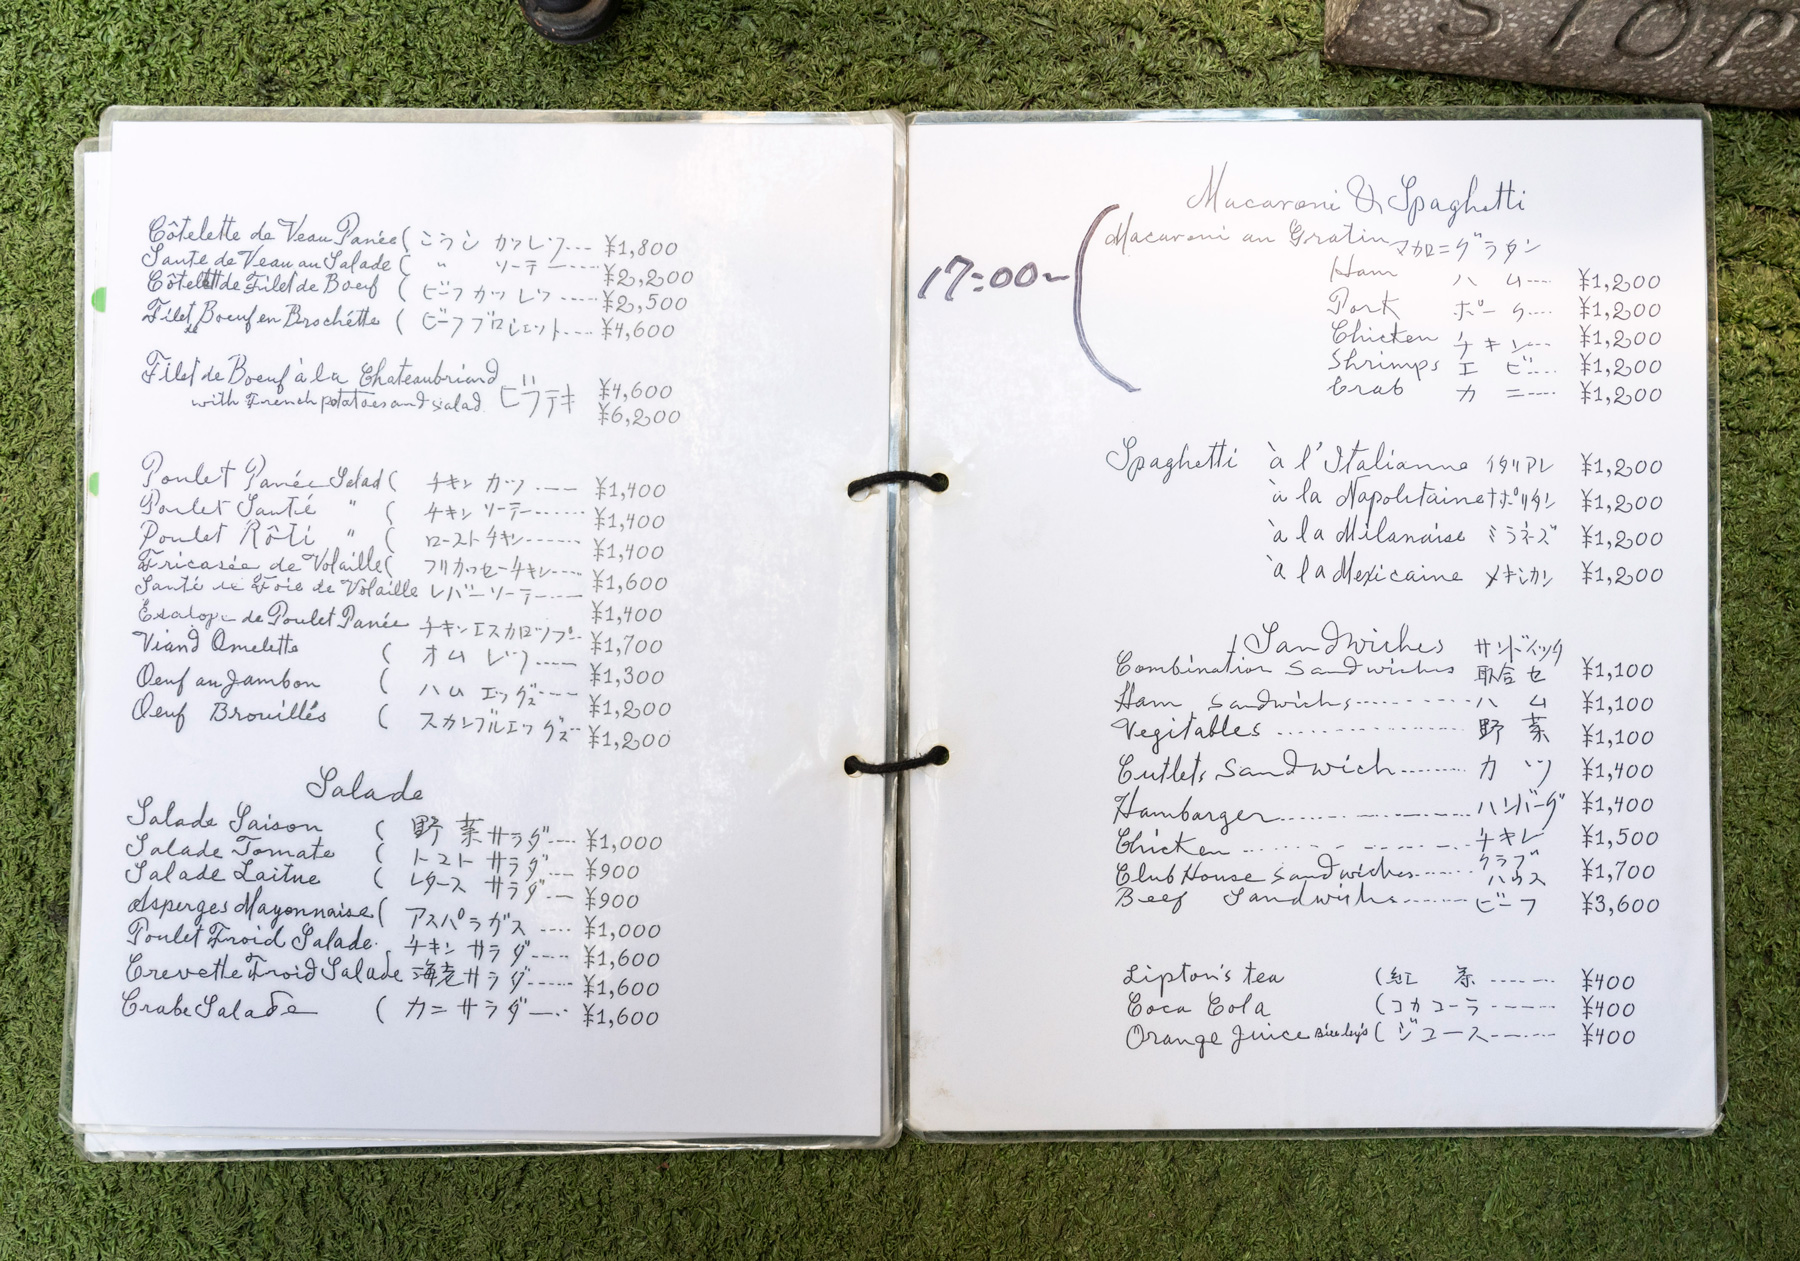 STOP
Côtelette de Veau Panée ( こうし カツレツ---- ¥1,800
Sauté de Veau au Salade ( 〃 ソーテー ------ ¥2,200
Côtelette de Filet de Boeuf ( ビーフ カツ レツ ------ ¥2,500
Filet de Boeuf en Brochétte ( ビーフ ブロシェット----- ¥4,600
Filet de Boeuf à la Chateaubriand ビフテキ ¥4,600
with French potatoes and salad ¥6,200
Poulet Panée Salad ( チキン カツ ------ ¥1,400
Poulet Sauté 〃 ( チキン ソーテー------- ¥1,400
Poulet Rôti 〃 ( ローストチキン------- ¥1,400
Fricasée de Volaille ( フリカッセーチキン----- ¥1,600
Sauté de Foie de Volaille レバーソーテー------ ¥1,400
Escalope de Poulet Panée チキンエスカロップ-- ¥1,700
Viand Omelette ( オム レツ ------ ¥1,300
Oeuf au Jambon ( ハム エッグス---- ¥1,200
Oeuf Brouillés ( スカンブルエッグス-- ¥1,200
Salade
Salade Saison ( 野 菜 サラダ---- ¥1,000
Salade Tomate ( トマト サラダ---- ¥900
Salade Laitue ( レタース サラダ---- ¥900
Asperges Mayonnaise ( アスパラガス ---- ¥1,000
Poulet Froid Salade ( チキン サラダ---- ¥1,600
Crevette Froid Salade 海老サラダ------ ¥1,600
Crabe Salade ( カニ サラダ---- ¥1,600
Macaroni & Spaghetti
17:00~ ( Macaroni au Gratin マカロニグラタン
Ham ハ ム---- ¥1,200
Pork ポーク---- ¥1,200
Chicken チキン---- ¥1,200
Shrimps エ ビ---- ¥1,200
Crab カ ニ---- ¥1,200
Spaghetti à l'Italianne イタリアン ¥1,200
à la Napolitaine ナポリタン ¥1,200
à la Milanaise ミラネーズ ¥1,200
à la Mexicaine メキシカン ¥1,200
Sandwiches サンドイッチ
Combination Sandwiches 取合せ ¥1,100
Ham Sandwichs---------- ハ ム ¥1,100
Vegitables ------------- 野 菜 ¥1,100
Cutlets Sandwich-------- カ ツ ¥1,400
Hambarger------------- ハンバーグ ¥1,400
Chicken --------------- チキン ¥1,500
Club House Sandwiches------ クラブハウス ¥1,700
Beef Sandwichs------- ビーフ ¥3,600
Lipton's tea ( 紅 茶 ------- ¥400
Coca Cola ( コカコーラ ------- ¥400
Orange Juice Bireley's ( ジュース------- ¥400